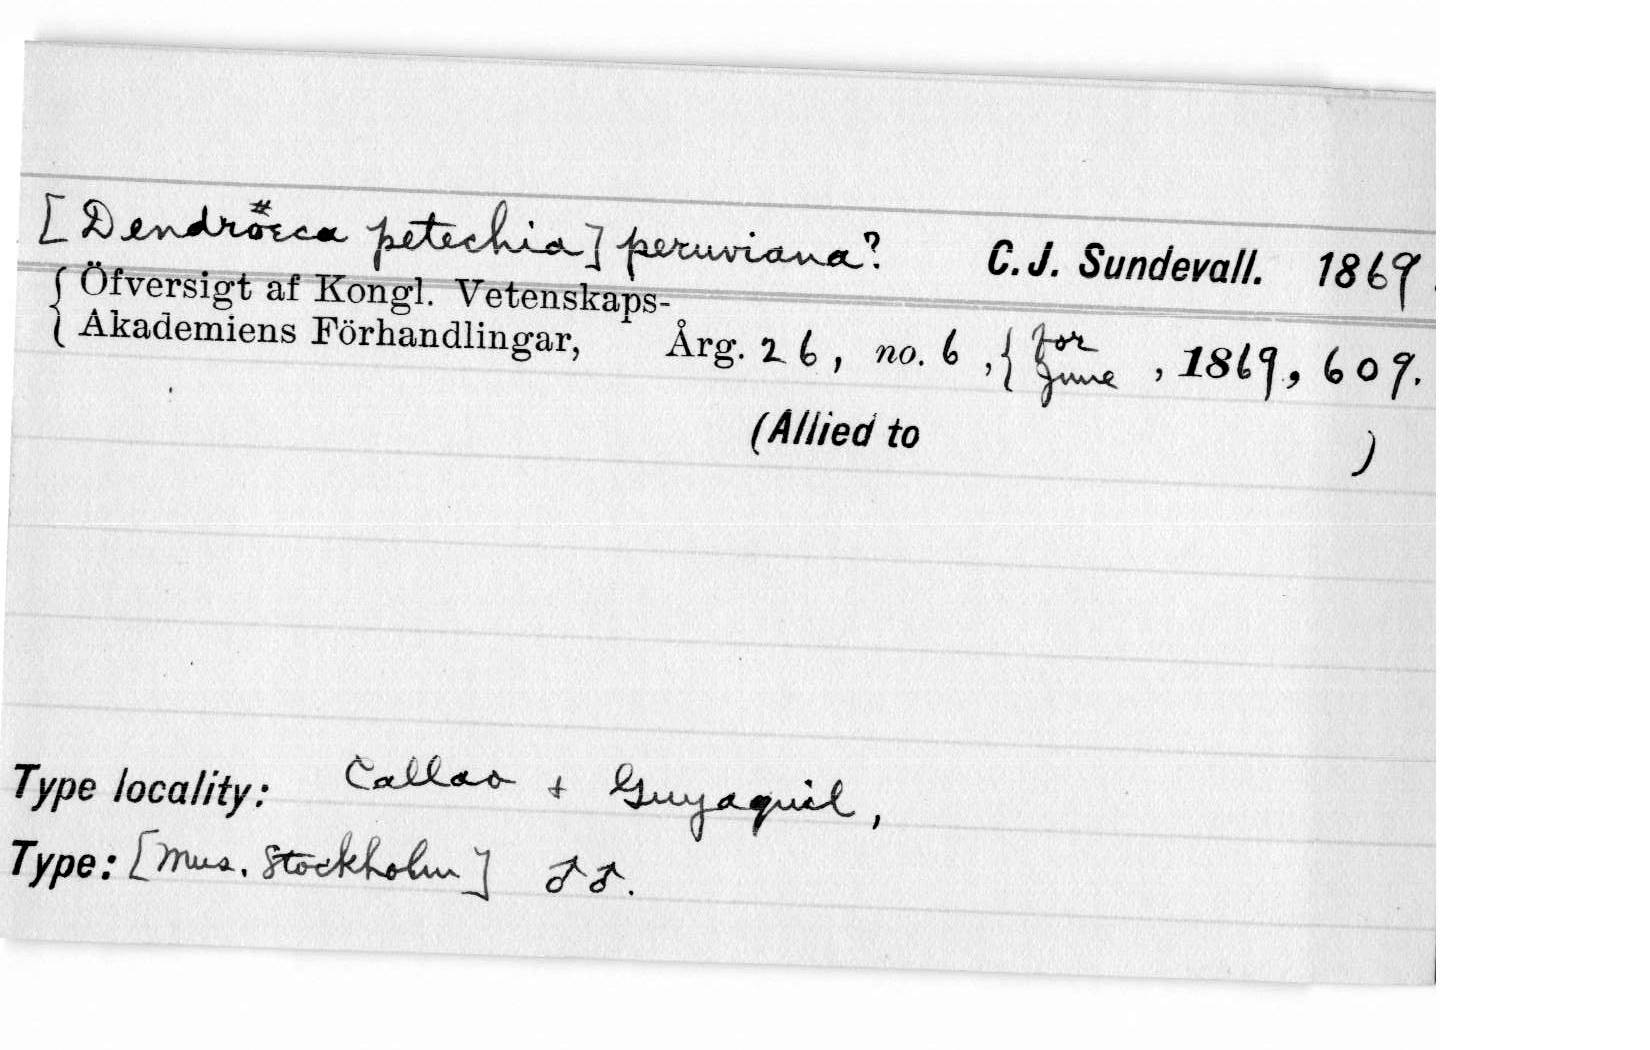 [Dendröeca petechia] peruviana? C. J. Sundevall. 1869.
{ Öfversigt af Kongl. Vetenskaps-
{ Akademiens Förhandlingar, Årg. 26, no. 6, { for June, 1869, 609.
(Allied to )
Type locality: Callao + Guyaquil,
Type: [Mus. Stockholm] ♂♂.